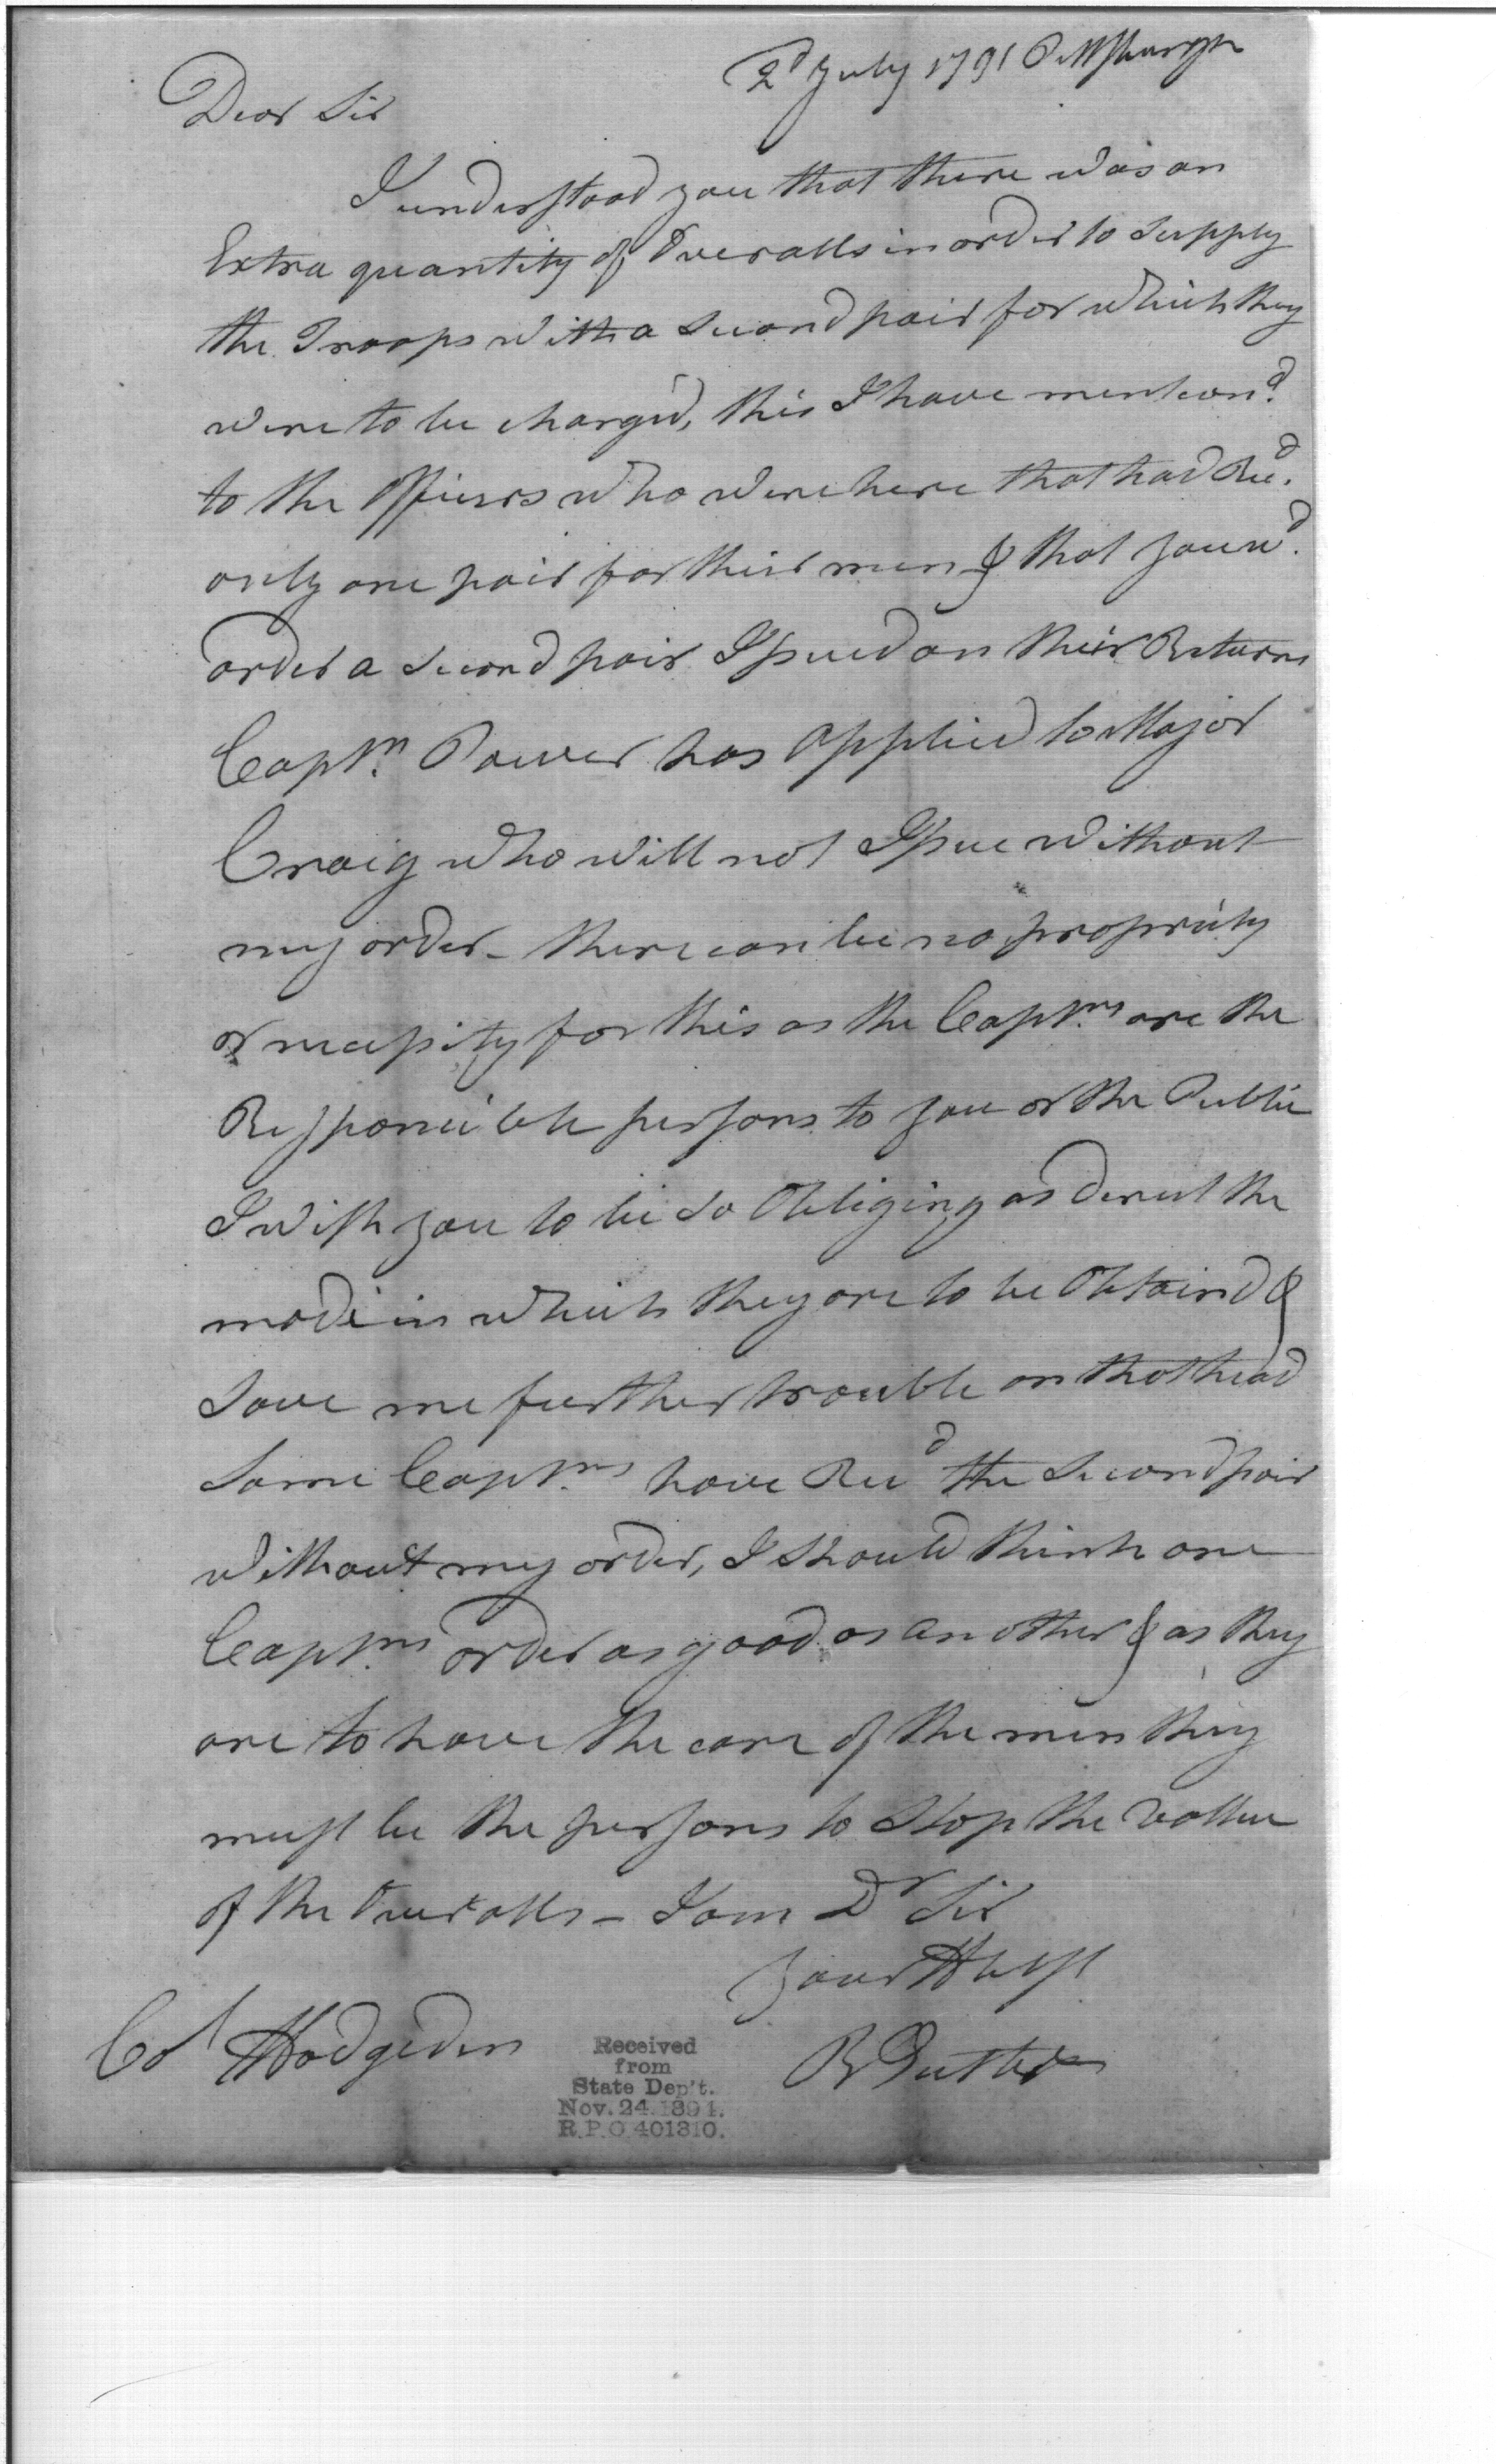 2d July 1791 Pittsburgh
Dear Sir
I understood you that there was an
Extra quantity of Overalls in order to Supply
the Troops with a Second pair for which they
were to be charged, this I have mention'd
to the Officers who were here that had Recd.
only one pair for their men & that you wd.
order a Second pair Issued on their Returns
Captn. Power has Applied to Major
Craig who will not Issue without
my order - there can be no propriety
or necessity for this as the Captns. are the
Responcible persons to you or the Public
I wish you to be So Obliging as direct the
mode in which they are to be Obtaind &
Save me further trouble on that head
Some Captns. have Recd the Second pair
without my order, I Should think one
Captns. order as good as another & as they
are to have the care of the men they
must be the persons to Stop the vallue
of the Overalls - I am Dr Sir
Your Hble St
Col Hodgdon
R Butler
Received
from
State Dep't.
Nov. 24. 1894.
R.P.O. 401310.